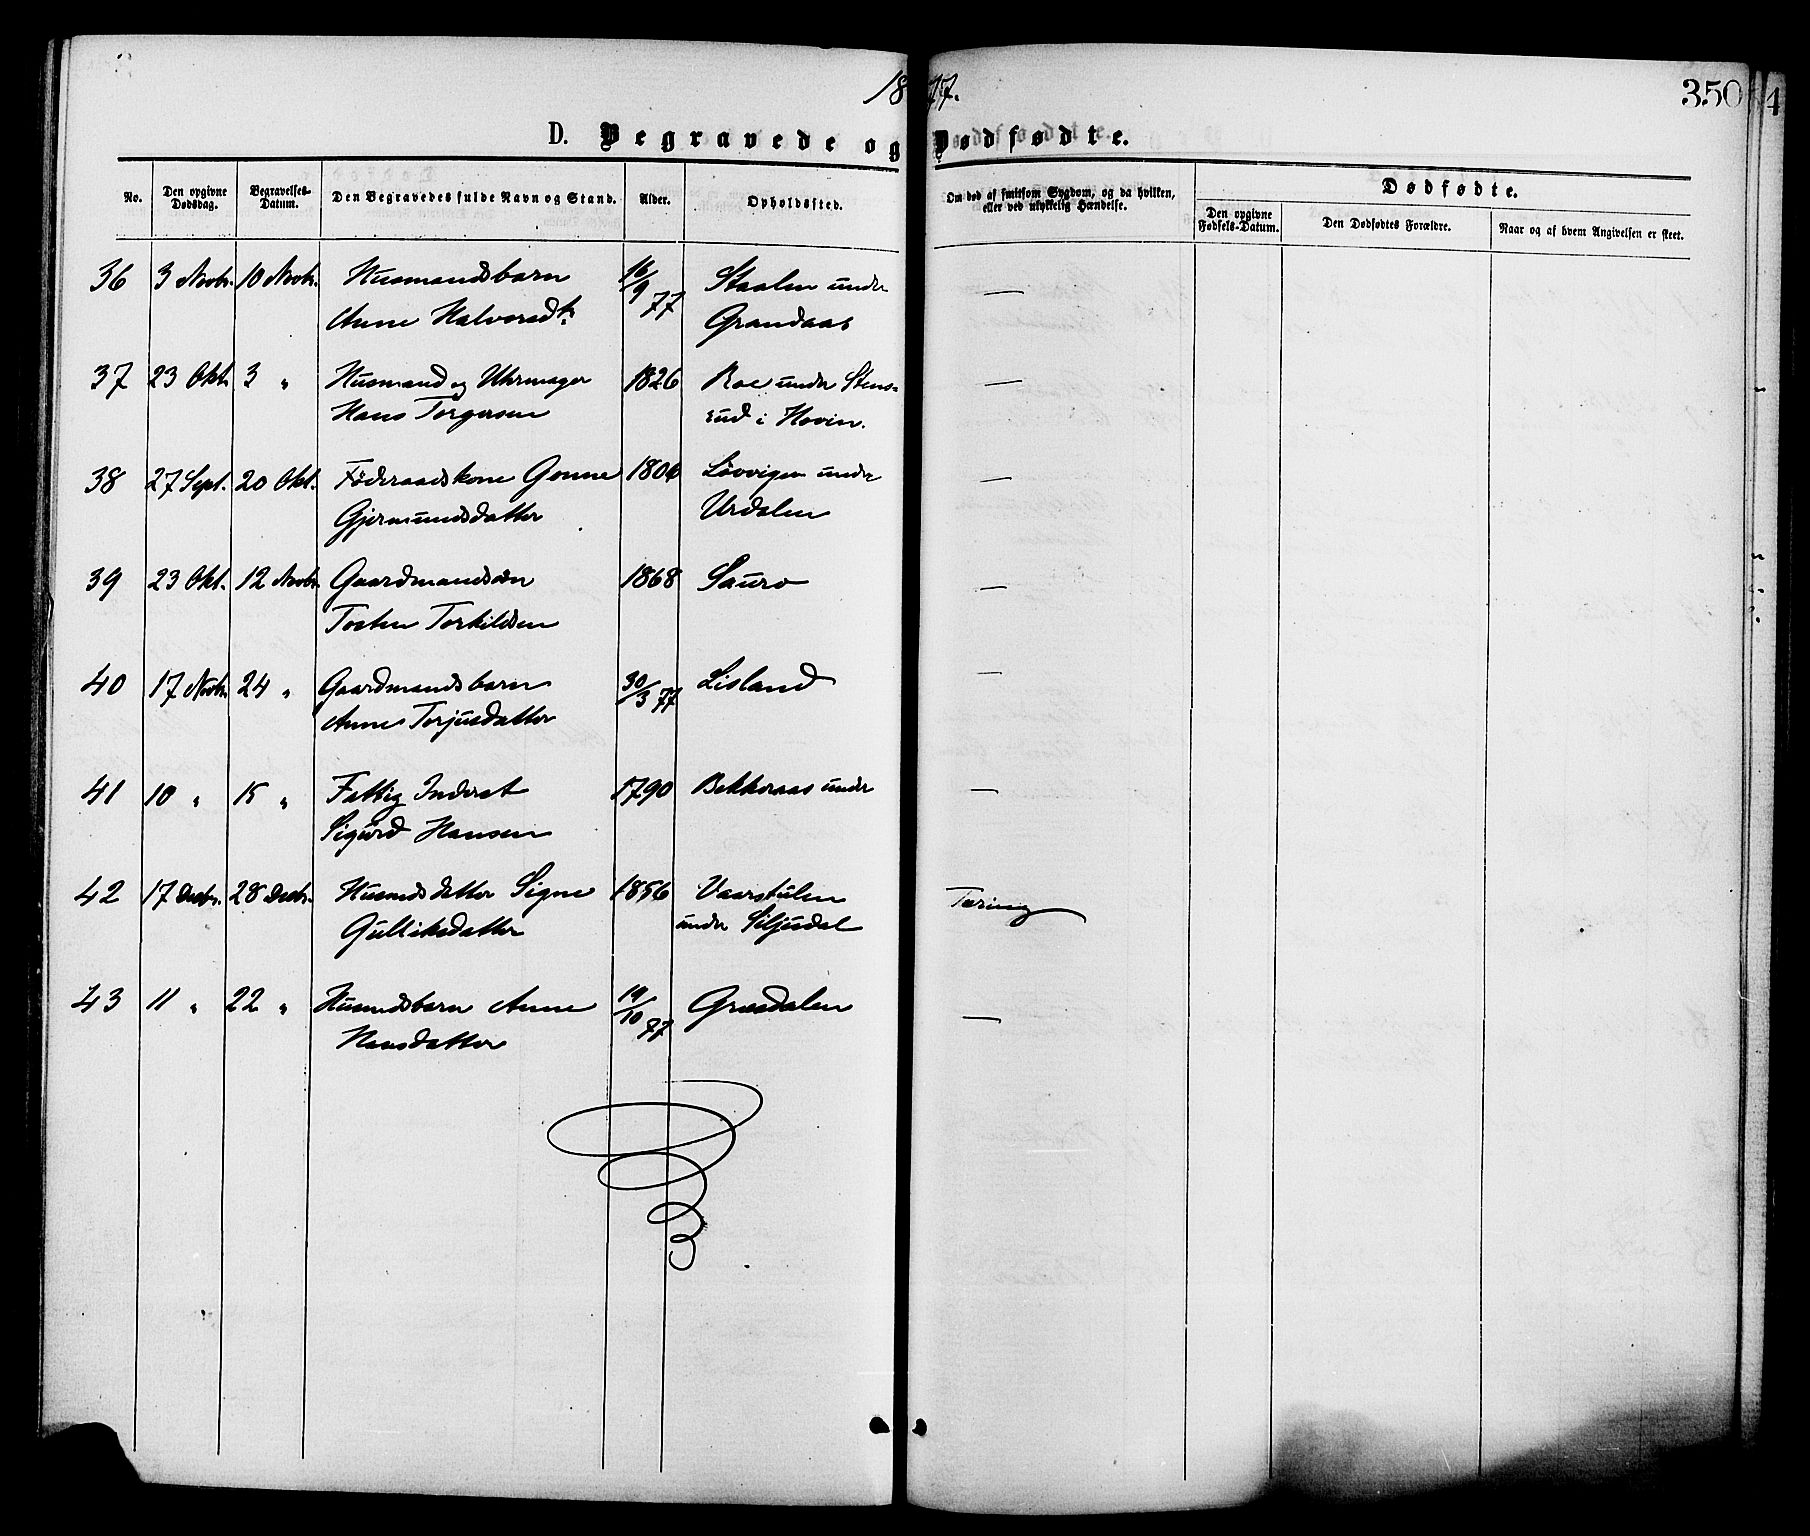 1877.
350
4
D. Begravede og Dødfødte.
No.
Den opgivne Dødsdag.
Begravelses-Datum.
Den Begravedes fulde Navn og Stand.
Alder.
Opholdssted.
Om død af smitsom Sygdom, og da hvilken, eller ved ulykkelig Hændelse.
Dødfødte.
Den opgivne Fødsels-Datum.
Den Dødfødtes Forældre.
Naar og af hvem Angivelsen er skeet.
36 3 Novbr. 10 Novbr. Husmandsbarn 16/9 77 Staalen under —
Anne Halvorsdtr. Grandaas
37 23 Okt. 3 " Husmand og Uhrmager 1826 Roe under Stens- —
Hans Torgersen rud i Hovin.
38 27 Sept. 20 Okt. Föderaadskone Gonne 1806 Løvvigen under —
Gjermundsdatter Urdalen
39 23 Okt. 12 Novbr. Gaardmandssøn 1868 Sauro —
Tosten Torkildsen
40 17 Novbr. 24 " Gaardmandsbarn 30/3 77 Lisland —
Anne Torjusdatter
41 10 " 15 " Fattig Inderst 1790 Bekkeraas under —
Sigurd Hansen
42 17 Decbr. 28 Decbr. Husmdsdatter Signe 1856 Vaarstulen Tæring
Gulliksdatter under Siljudal
43 11 " 22 " Husmdsbarn Anne 19/10 77 Græsdalen —
Hansdatter